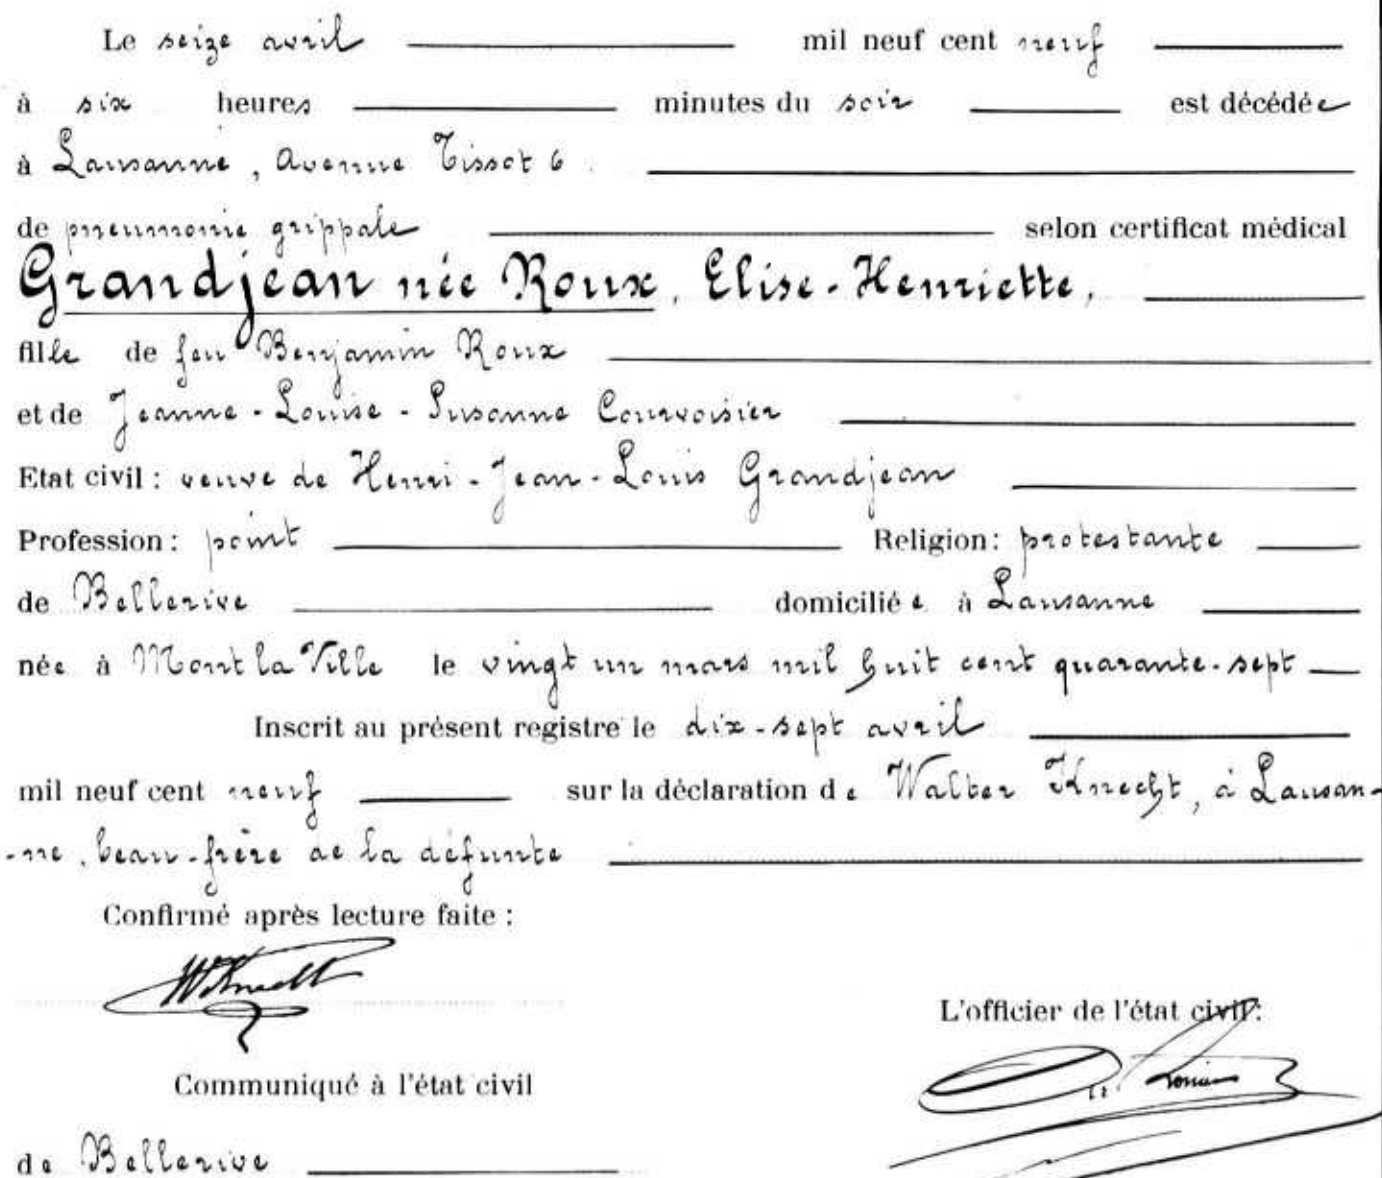 Le seize avril mil neuf cent neuf
à six heures minutes du soir est décédée
à Lausanne, Avenue Tissot 6
de pneumonie grippale selon certificat médical
Grandjean née Roux, Elise-Henriette,
fille de feu Benjamin Roux
et de Jeanne-Louise-Susanne Courvoisier
Etat civil: veuve de Henri-Jean-Louis Grandjean
Profession: point Religion: protestante
de Bellerive domiciliée à Lausanne
née à Mont la Ville le vingt un mars mil huit cent quarante-sept
Inscrit au présent registre le dix-sept avril
mil neuf cent neuf sur la déclaration de Walter Knecht, à Lausan-
-ne, beau-frère de la défunte
Confirmé après lecture faite:
W Knecht
L'officier de l'état civil:
Communiqué à l'état civil
de Bellerive